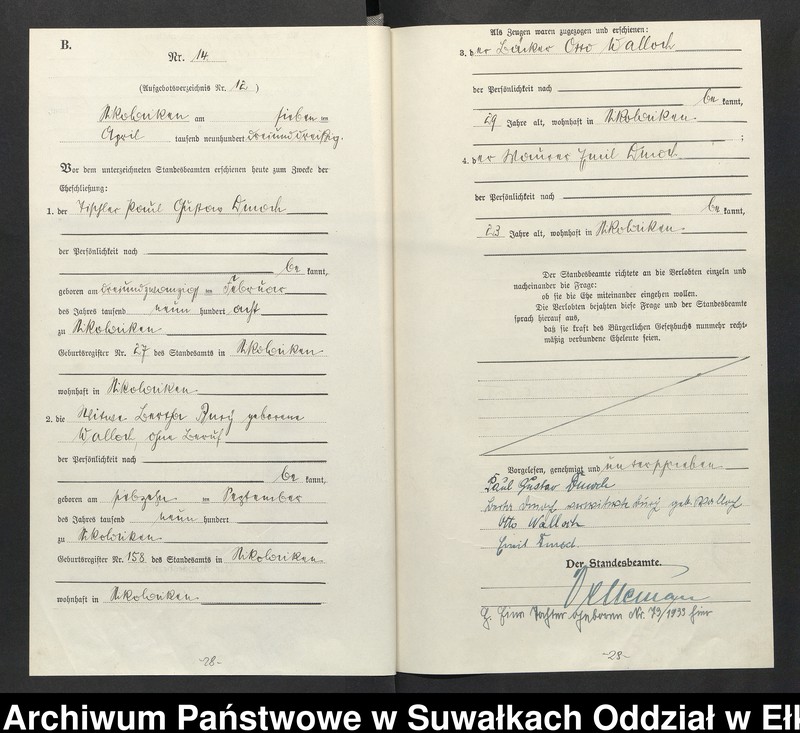 B.
Nr. 14
(Aufgebotsverzeichnis Nr. 12)
Nikolaiken am sieben ten
April tausend neunhundert dreiunddreißig.
Vor dem unterzeichneten Standesbeamten erschienen heute zum Zwecke der
Eheschließung:
1. der Tischler Paul Gustav Dmoch
der Persönlichkeit nach
be kannt,
geboren am dreiundzwanzigst en Februar
des Jahres tausend neun hundert acht
zu Nikolaiken
Geburtsregister Nr. 27 des Standesamts in Nikolaiken
wohnhaft in Nikolaiken
2. die Witwe Bertha geborene
Walloch, ohne Beruf
der Persönlichkeit nach
be kannt,
geboren am siebzehn ten September
des Jahres tausend neun hundert
zu Nikolaiken
Geburtsregister Nr. 158 des Standesamts in Nikolaiken
wohnhaft in Nikolaiken
-28-
Als Zeugen waren zugezogen und erschienen:
3. der Bäcker Otto Walloch
der Persönlichkeit nach
be kannt,
29 Jahre alt, wohnhaft in Nikolaiken
;
4. der Maurer Emil Dmoch
der Persönlichkeit nach
be kannt,
23 Jahre alt, wohnhaft in Nikolaiken
Der Standesbeamte richtete an die Verlobten einzeln und
nacheinander die Frage:
ob sie die Ehe miteinander eingehen wollen.
Die Verlobten bejahten diese Frage und der Standesbeamte
sprach hierauf aus,
daß sie kraft des Bürgerlichen Gesetzbuchs nunmehr recht-
mäßig verbundene Eheleute seien.
Vorgelesen, genehmigt und unterschrieben
Paul Gustav Dmoch
Berta Dmoch verwitwete geb. Walloch
Otto Walloch
Emil Dmoch.
Der Standesbeamte.
Eine Tochter geboren Nr. 79/1933 hier
-29-
Archiwum Państwowe w Suwałkach Oddział w Ełk